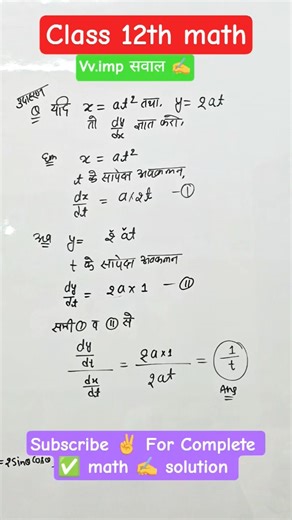 Class 12th math
Vv.imp सवाल ✍️
उदाहरण
Q यदि x = at² तथा, y = 2at
तो dy/dx ज्ञात करो,
हल x = at²
t के सापेक्ष अवकलन,
dx/dt = a×2t – I
अब y = 2at
t के सापेक्ष अवकलन
dy/dt = 2a×1 – II
समी I व II से
dy/dt / dx/dt = 2a×1 / 2at = 1/t
Ans
=2Sinθ Cosθ
Subscribe ✌️ For Complete
✅ math ✍️ solution